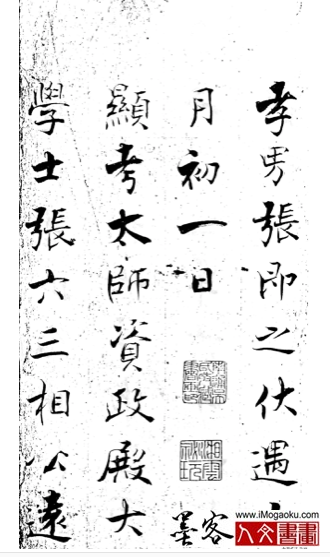 孝男張即之伏遇
月初一日
顯考太師資政殿大
學士張六三相公遠
墨客
www.iMogaoku.com
人文書畫